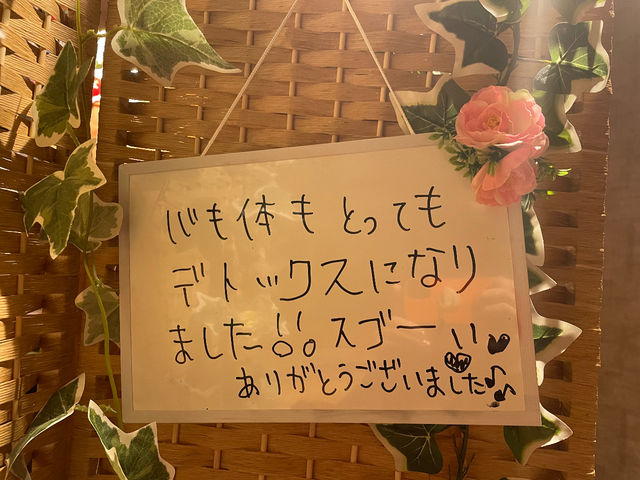 心も体もとっても
デトックスになり
ました!!スゴーい♥
ありがとうございました♪